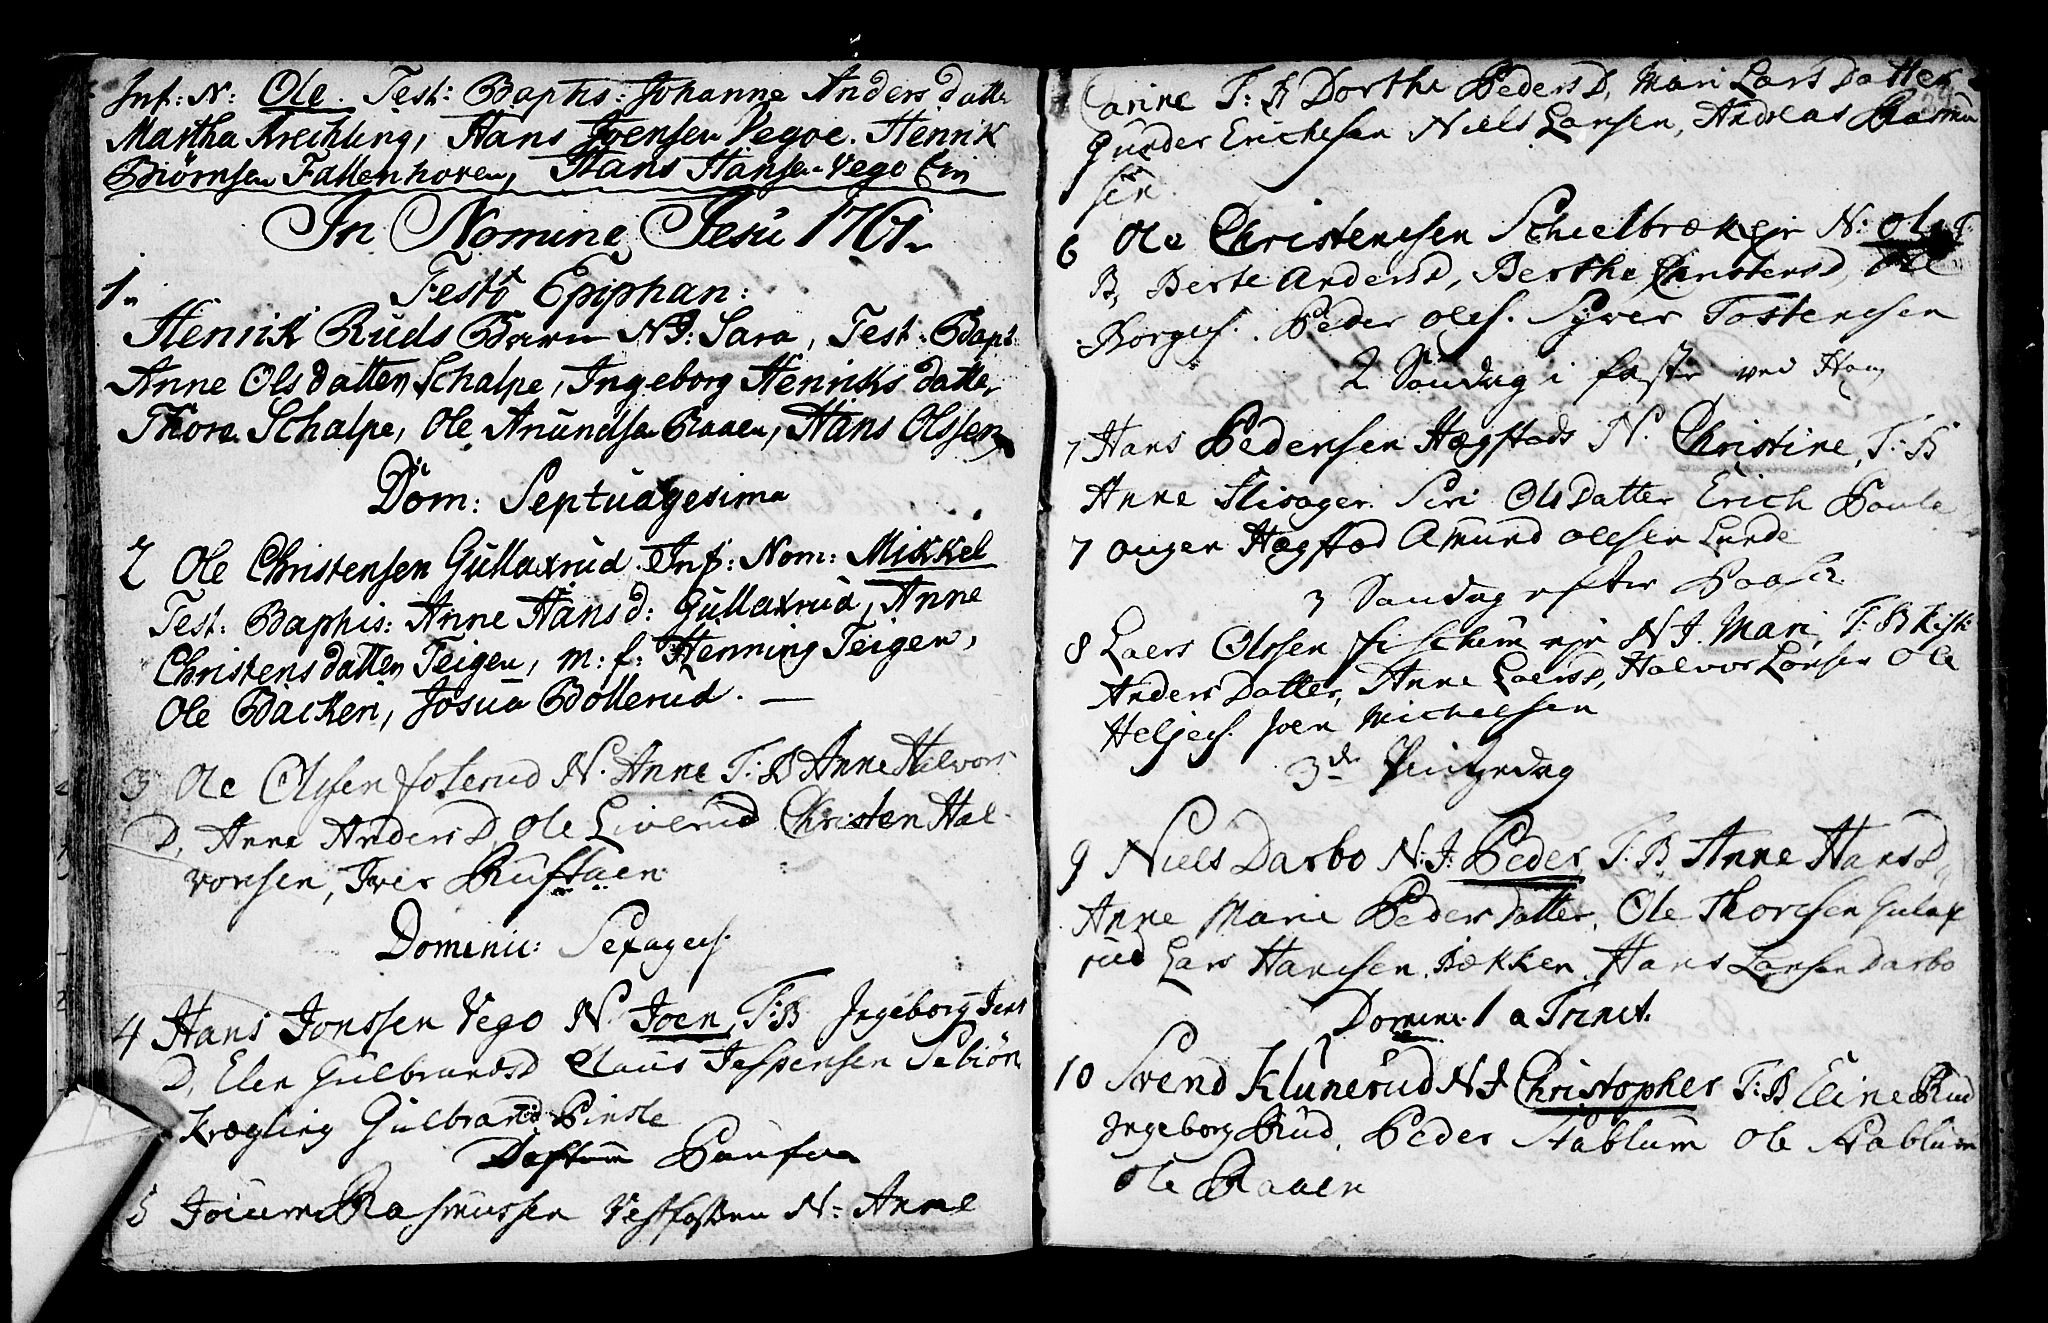 Inf: N: Ole. Test: Baptis: Johanne Anders datte
Martha Krechling, Hans Ivensen Vegoe. Henrik
Biørnsen Fallenhoven, Hans Hansen Vego Ein
In Nomine Jesu 1761
1. Festo Epiphan:
Henrik Ruds Barn N J: Sara, Test: Bapt:
Anne Olsdatter Schalpe, Ingeborg Henriksdatter
Thore Schalpe, Ole Amundsen Raaen, Hans Olssen
Dom: Septuagesima
2 Ole Christensen Gullaxrud Inf: Nom: Mikkel
Test: Baptis: Anne Hans d: Gullaxrud, Anne
Christensdatter Teigen, m: f: Henning Teigen,
Ole Backen, Josua Bollerud. —
3 Ole Olssen Foserud N. Anne T: B Anne Halvors
D, Anne Anders D, Ole Liverud Christen Hal-
vorsen, Iver Rustaen
Dominic: Sexages.
4 Hans Jonssen Vego N. Joen T: B Ingeborg Jens
D, Elen Gulbrands D Claus Jespersen Sebiøn
Krægling Gulbrand Pinsle
5 Joium Rasmussen Vestfossen N: Anne
Carine T: B Dorthe Peders D, Mari Lars Datter
Gunder Erichsen Niels Larsen, Andreas Rasmu
sen
6 Ole Christensen Scheelbrækejr N: Ole T:
B, Berte Anders D, Berthe Christens D, Ole
Borges. Peder Oles. Syver Tostensen
2 Søndag i faste ved Haug
7 Hans Pedersen Hægstads N. Christine, T: B
Anne Flisager Siri Olsdatter Erich Poule
7 ougen Hægstad Amund Olesen Lunde
3 Søndag efter Paaske
8 Laers Olssen Fischum ejr N J. Mari, T: B Kisti
Anders Datter, Anne Laers D, Halvor Larsen Ole
Heljes. Joen Michelsen
3de Pintzedag
9 Niels Darbo N: J: Peder T: B Anne Hans D,
Anne Marie Peders Datter, Ole Thoresen Gulax
rud Lars Hansen Bækken, Hans Larsen Darbo
Domin: 1 a Trinit.
10 Svend Klunerud N J Christopher T: B Eline Rud
Ingeborg Rud, Peder Stablum Ole Stablum
Ole Raaen